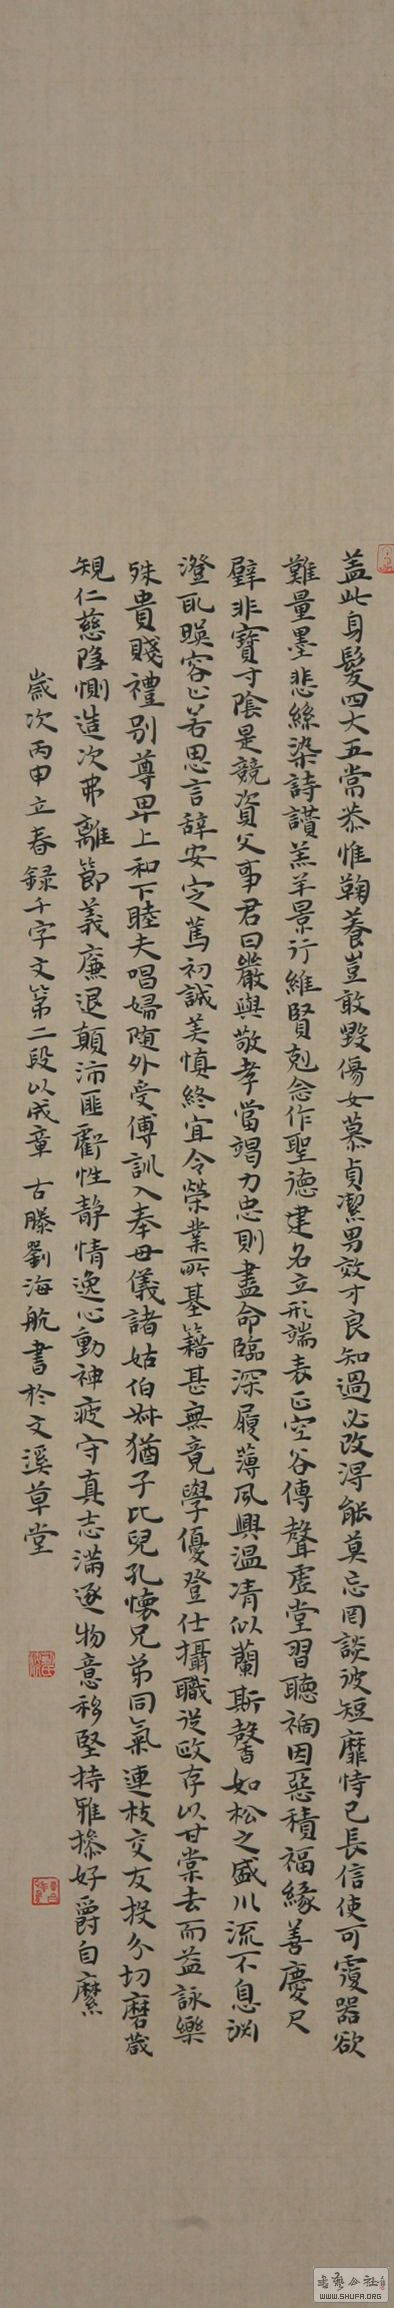 盖此身髮四大五常恭惟鞠養豈敢毀傷女慕貞潔男效才良知過必改得能莫忘罔談彼短靡恃己長信使可覆器欲
難量墨悲絲染詩讃羔羊景行維賢剋念作聖德建名立形端表正空谷傳聲虛堂習聽禍因惡積福緣善慶尺
璧非寶寸陰是競資父事君曰嚴與敬孝當竭力忠則盡命臨深履薄夙興溫凊似蘭斯馨如松之盛川流不息淵
澄取暎容止若思言辭安定篤初誠美慎終宜令榮業所基籍甚無竟學優登仕攝職從政存以甘棠去而益詠樂
殊貴賤禮別尊卑上和下睦夫唱婦随外受傅訓入奉母儀諸姑伯叔猶子比兒孔懷兄弟同氣連枝交友投分切磨箴
規仁慈隱惻造次弗離節義廉退顛沛匪虧性靜情逸心動神疲守真志滿逐物意移堅持雅操好爵自縻
歲次丙申立春録千字文第二段以成章 古滕劉海航書於文溪草堂
WWW.SHUFA.ORG